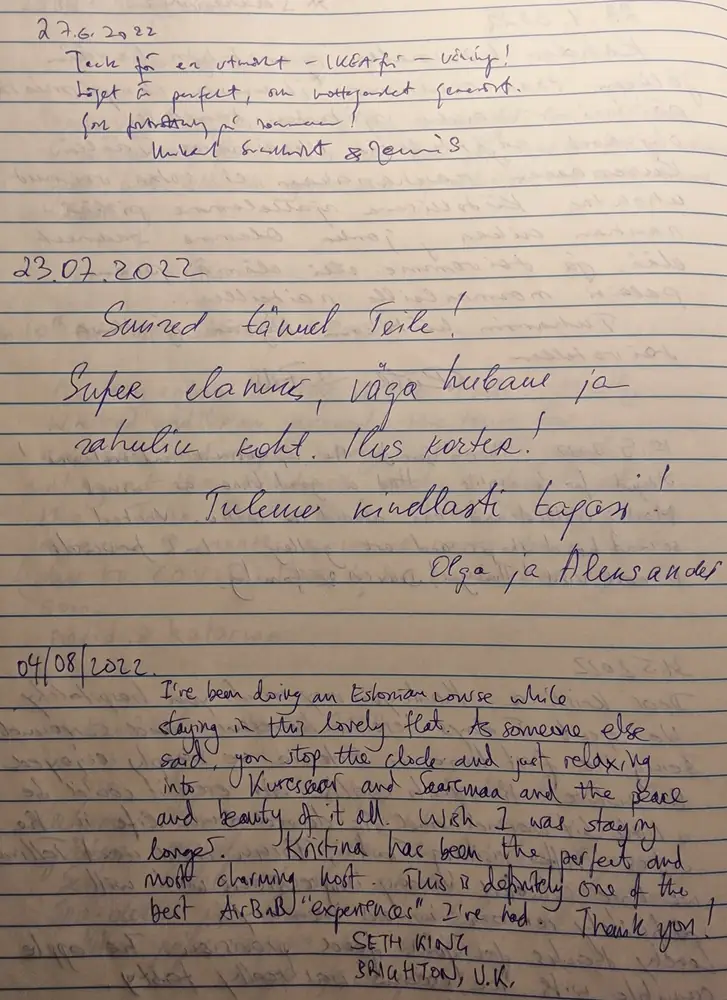 27.6.2022
Tack för en utmärkt – IKEA-fri – våning!
Läget är perfekt, och mottagandet generöst.
God fortsättning på sommaren!
Mikael & Jennis
23.07.2022
Suured tänud Teile!
Super elamus, väga hubane ja
rahulik koht. Ilus korter!
Tuleme kindlasti tagasi!
Olga ja Aleksander
04/08/2022.
I've been doing an Estonian course while
staying in this lovely flat. As someone else
said, you stop the clock and just relaxing
into Kuressaar and Saaremaa and the peace
and beauty of it all. Wish I was staying
longer. Kristina has been the perfect and
most charming host. This is definitely one of the
best AirBnB "experiences" I've had. Thank you!
SETH KING
BRIGHTON, U.K.